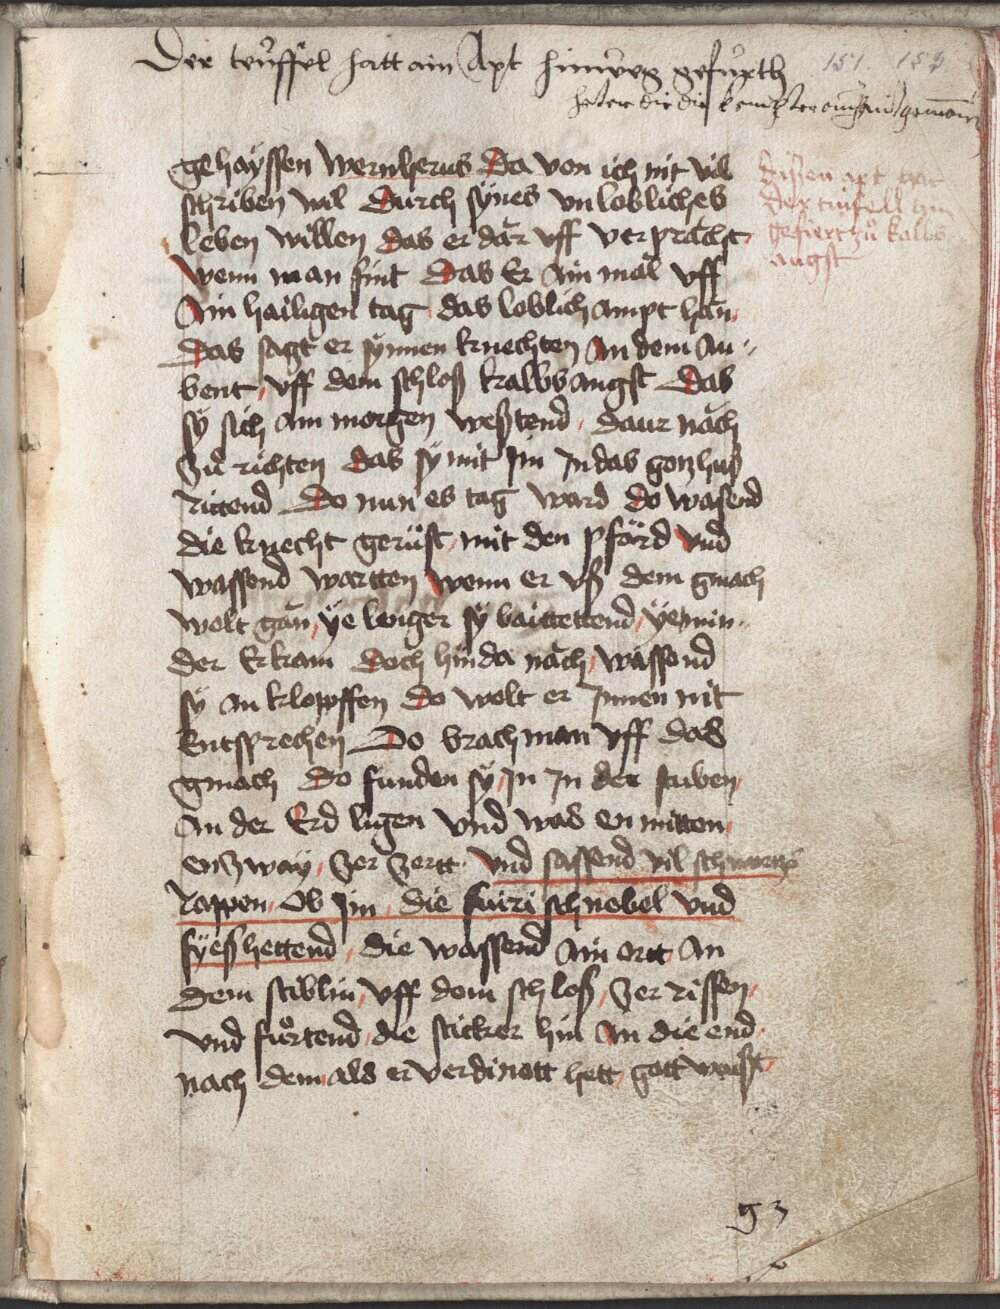 Der teüffel hatt ain Apt hinweg gefürth
151. 153
hetten die die
gehayssen wernherus Da von ich nit vil
schriben wil Durch synes unlobliches
leben willen das er där uff verprächt
wenn man fint Das Er Ain mäl uff
Ain hailigen tag das loblich ampt hän
Das sagt er synnen knechten An dem Au
bent, uff dem schloß kalbsangst Das
sy sich am morgen westend, daur näch
zu richten das sy mit Im In das gotzhus
rittend Do nun es tag ward do wasend
die knecht gerüst, mit den pfärd und
wassend wartten wenn er uß dem gmach
wolt gän, ye lenger sy baittettend, ye min
der Er kam Doch hin da näch, wassend
sy an klopffen do wolt er Innen nit
Entsprechen Do brach man uff das
gmach Do funden sy In In der stuben
An der Erd ligen und was en mitten
enzway, zer zertt und sassend vil schwartz
rappen, ob Im, die fuiri schnebel und
fyess hettend, die wassend Ain ortt An
dem stiblin, uff dem schloß, zer rissen
und fuortend, die sticker hin An die end
nach dem als er verdinott hett, gott waist
disen apt hat
der tuifell hin
gefiert zu kalbs
angst
93